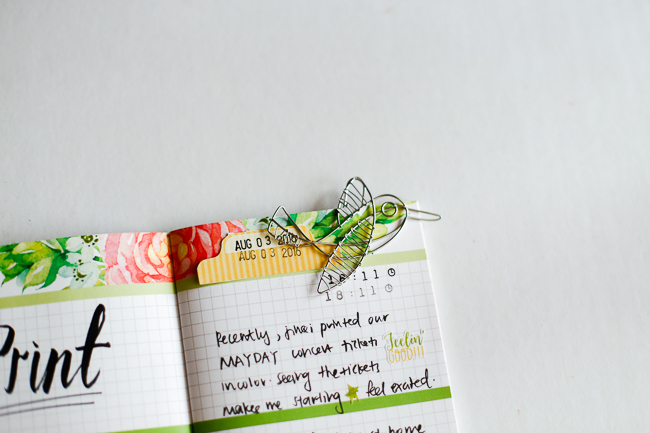 Print
AUG 03 2016
AUG 03 2016
18:11
18:11
Recently, printed our
MAYDAY concert tickets
"Feelin'
Good"
incolor. seeing the tickets
makes me starting feel exated.
home